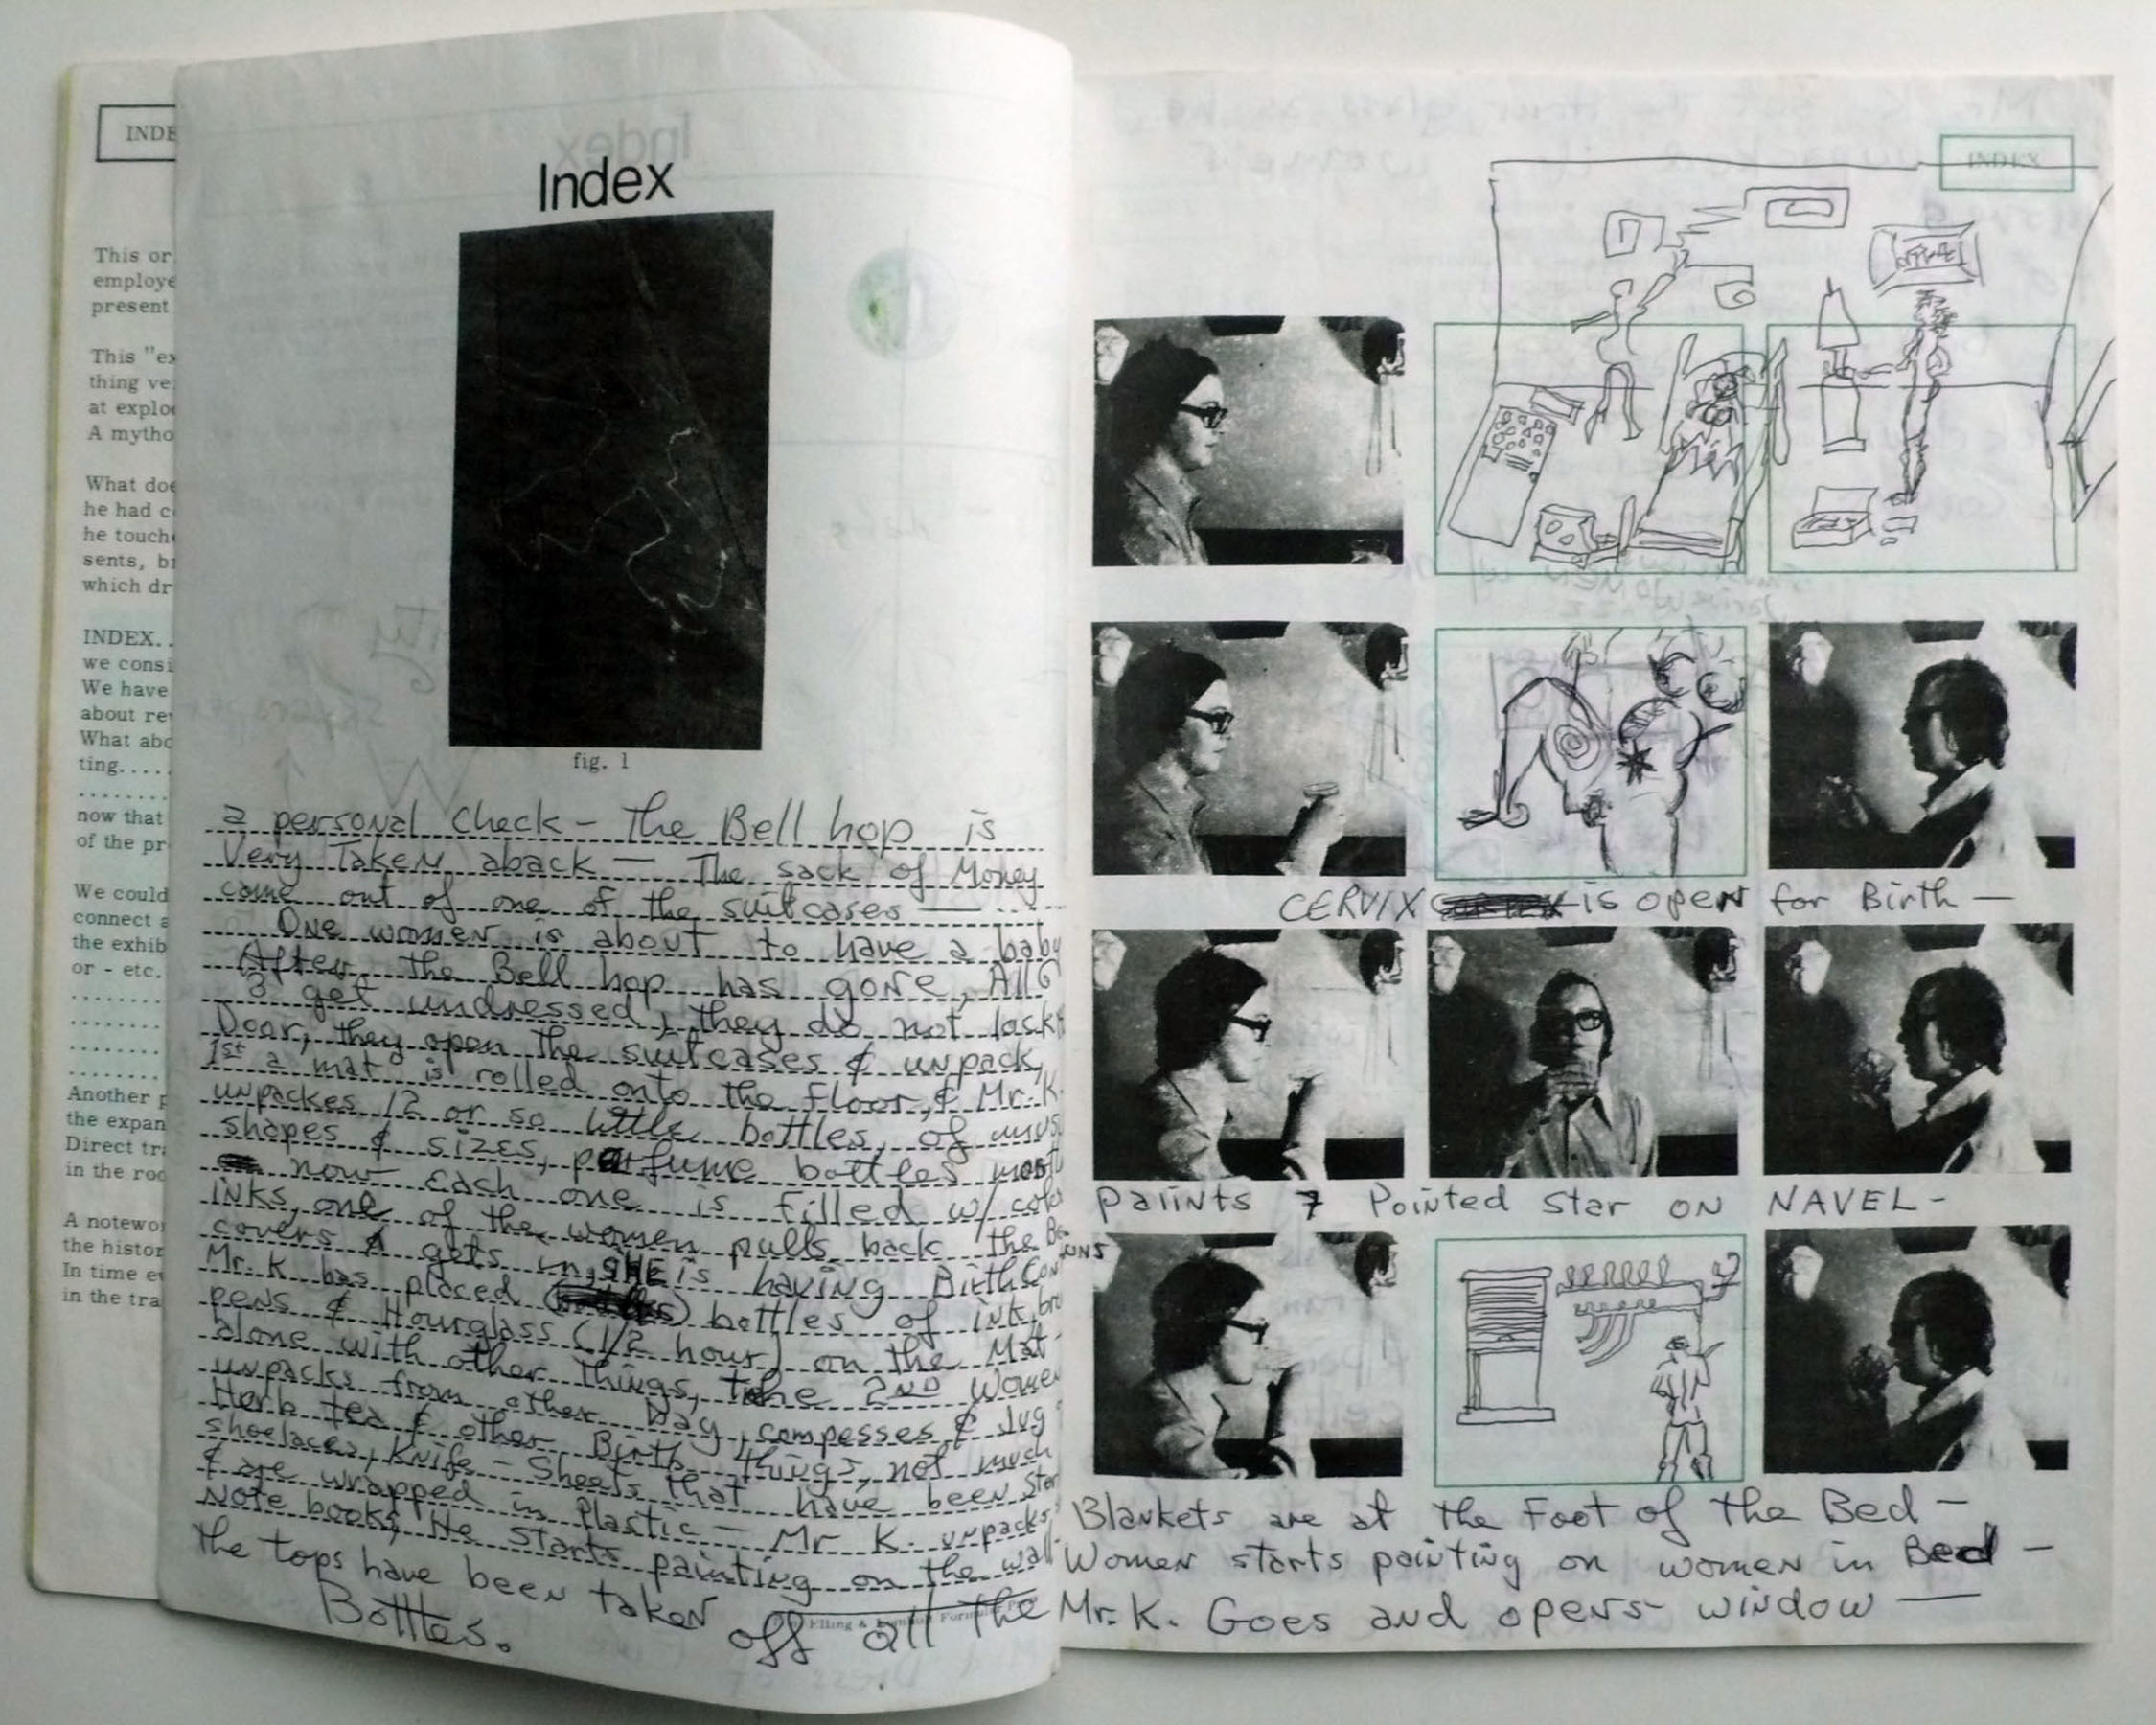 INDE
This or
employe
present
This "ex
thing ve
at explo
A mytho
What doe
he had c
he touch
sents, br
which dr
INDEX. .
we consi
We have
about re
What abo
ting.....
now that
of the pr
We could
connect a
the exhib
or - etc.
Another p
the expan
Direct tra
in the roo
A notewo
the histor
In time e
in the tra
Index
fig. 1
a personal check - The Bell hop is
very Taken aback — The sack of Money
come out of one of the suitcases —
One women is about to have a baby
After the Bell hop has gone, All
3 get undressed, they do not lock
Door, they open the suitcases & unpack,
1st a mat is rolled onto the Floor, & Mr. K.
unpackes 12 or so little bottles, of
shapes & sizes, perfume bottles
now Each one is filled w/
inks, one of the women pulls back the
covers & gets in, SHE is having Birth
Mr. K has placed bottles of ink,
pens & Hourglass (1/2 hour) on the Mat
alone with other things, The 2ND Women
unpacks from other bag, compesses & Jug
Herb tea & other Birth things, not much
shoelaces, Knife - Sheets that have been
& are wrapped in Plastic — Mr K. unpacks
Note books, He starts painting on the wall
The tops have been taken off all the
Bottles.
INDEX
CERVIX is open for Birth —
paiints 7 Pointed Star on NAVEL -
Blankets are at the Foot of the Bed —
Women starts painting on women in Bed —
Mr. K. Goes and opens window —